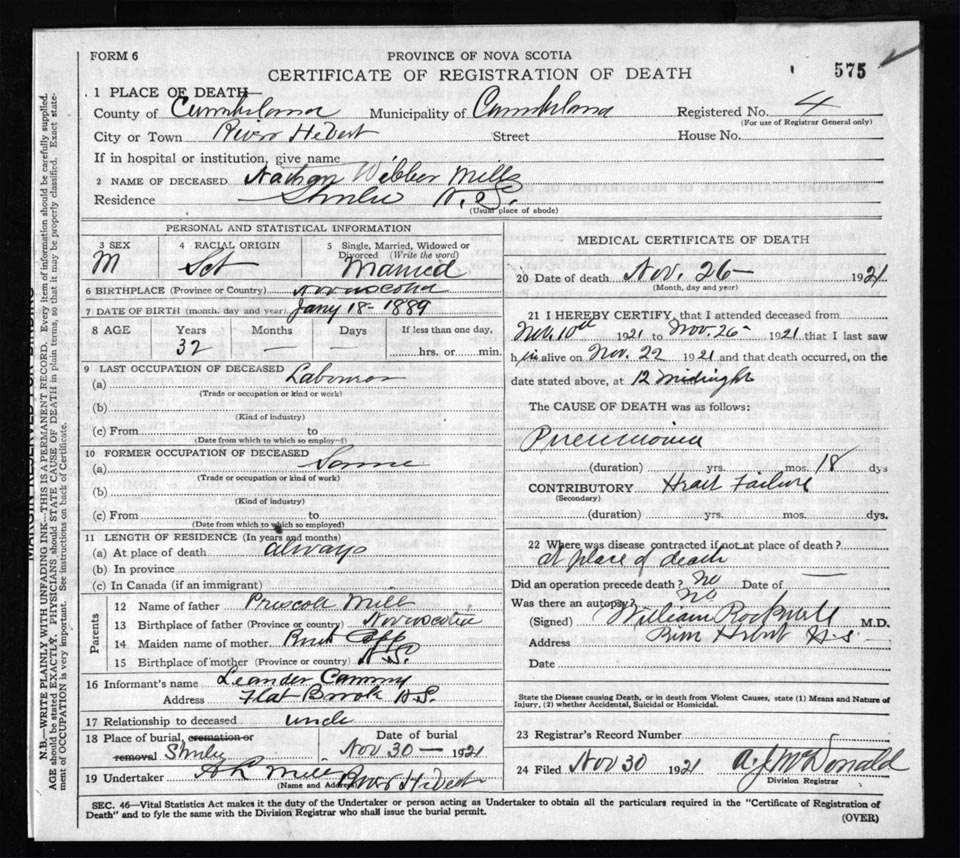 FORM 6
PROVINCE OF NOVA SCOTIA
CERTIFICATE OF REGISTRATION OF DEATH
575
1 PLACE OF DEATH—
County of Cumberland Municipality of Cumberland Registered No. 4
(For use of Registrar General only)
City or Town River Hebert Street House No.
If in hospital or institution, give name
2 NAME OF DECEASED Nathan Webber Mills
Residence Shulie N.S.
(Usual place of abode)
PERSONAL AND STATISTICAL INFORMATION
3 SEX 4 RACIAL ORIGIN 5 Single, Married, Widowed or
Divorced (Write the word)
M Sct Married
6 BIRTHPLACE (Province or Country) Nova Scotia
7 DATE OF BIRTH (month, day and year) Jany 18- 1889
8 AGE Years Months Days If less than one day,
32 — — hrs. or min.
9 LAST OCCUPATION OF DECEASED
(a) Labourer
(Trade or occupation or kind or work)
(b)
(Kind of industry)
(c) From to
(Date from which to which so employed)
10 FORMER OCCUPATION OF DECEASED
(a) Same
(Trade or occupation or kind of work)
(b)
(Kind of industry)
(c) From to
(Date from which to which so employed)
11 LENGTH OF RESIDENCE (In years and months)
(a) At place of death always
(b) In province
(c) In Canada (if an immigrant)
Parents
12 Name of father Mills
13 Birthplace of father (Province or country) Nova Scotia
14 Maiden name of mother
15 Birthplace of mother (Province or country) N.S.
16 Informant's name Leander
Address Flat Brook N.S.
17 Relationship to deceased uncle
18 Place of burial, cremation or Date of burial
removal Shulie Nov 30 — 1921
19 Undertaker Mills River Hebert
(Name and Address)
MEDICAL CERTIFICATE OF DEATH
20 Date of death Nov. 26— 1921
(Month, day and year)
21 I HEREBY CERTIFY, that I attended deceased from
Nov. 10th 1921 to Nov. 26- 1921 that I last saw
him alive on Nov. 22 1921 and that death occurred, on the
date stated above, at 12 midnight
The CAUSE OF DEATH was as follows:
Pneumonia
(duration) yrs. mos. 18 dys
CONTRIBUTORY Heart Failure
(Secondary)
(duration) yrs. mos. dys.
22 Where was disease contracted if not at place of death?
at place of death
Did an operation precede death? no Date of —
Was there an autopsy? no
(Signed) William Rockwell M.D.
Address River Hebert N.S.
Date
State the Disease causing Death, or in death from Violent Causes, state (1) Means and Nature of
Injury, (2) whether Accidental, Suicidal or Homicidal.
23 Registrar's Record Number
24 Filed Nov 30 1921 A.J. McDonald
Division Registrar
SEC. 46—Vital Statistics Act makes it the duty of the Undertaker or person acting as Undertaker to obtain all the particulars required in the "Certificate of Registration of
Death" and to fyle the same with the Division Registrar who shall issue the burial permit.
(OVER)
MARGIN RESERVED FOR BINDING
N.B.—WRITE PLAINLY WITH UNFADING INK—THIS IS A PERMANENT RECORD. Every item of information should be carefully supplied.
AGE should be stated EXACTLY. PHYSICIANS should STATE CAUSE OF DEATH in plain terms, so that it may be properly classified. Exact state-
ment of OCCUPATION is very important. See instructions on back of Certificate.